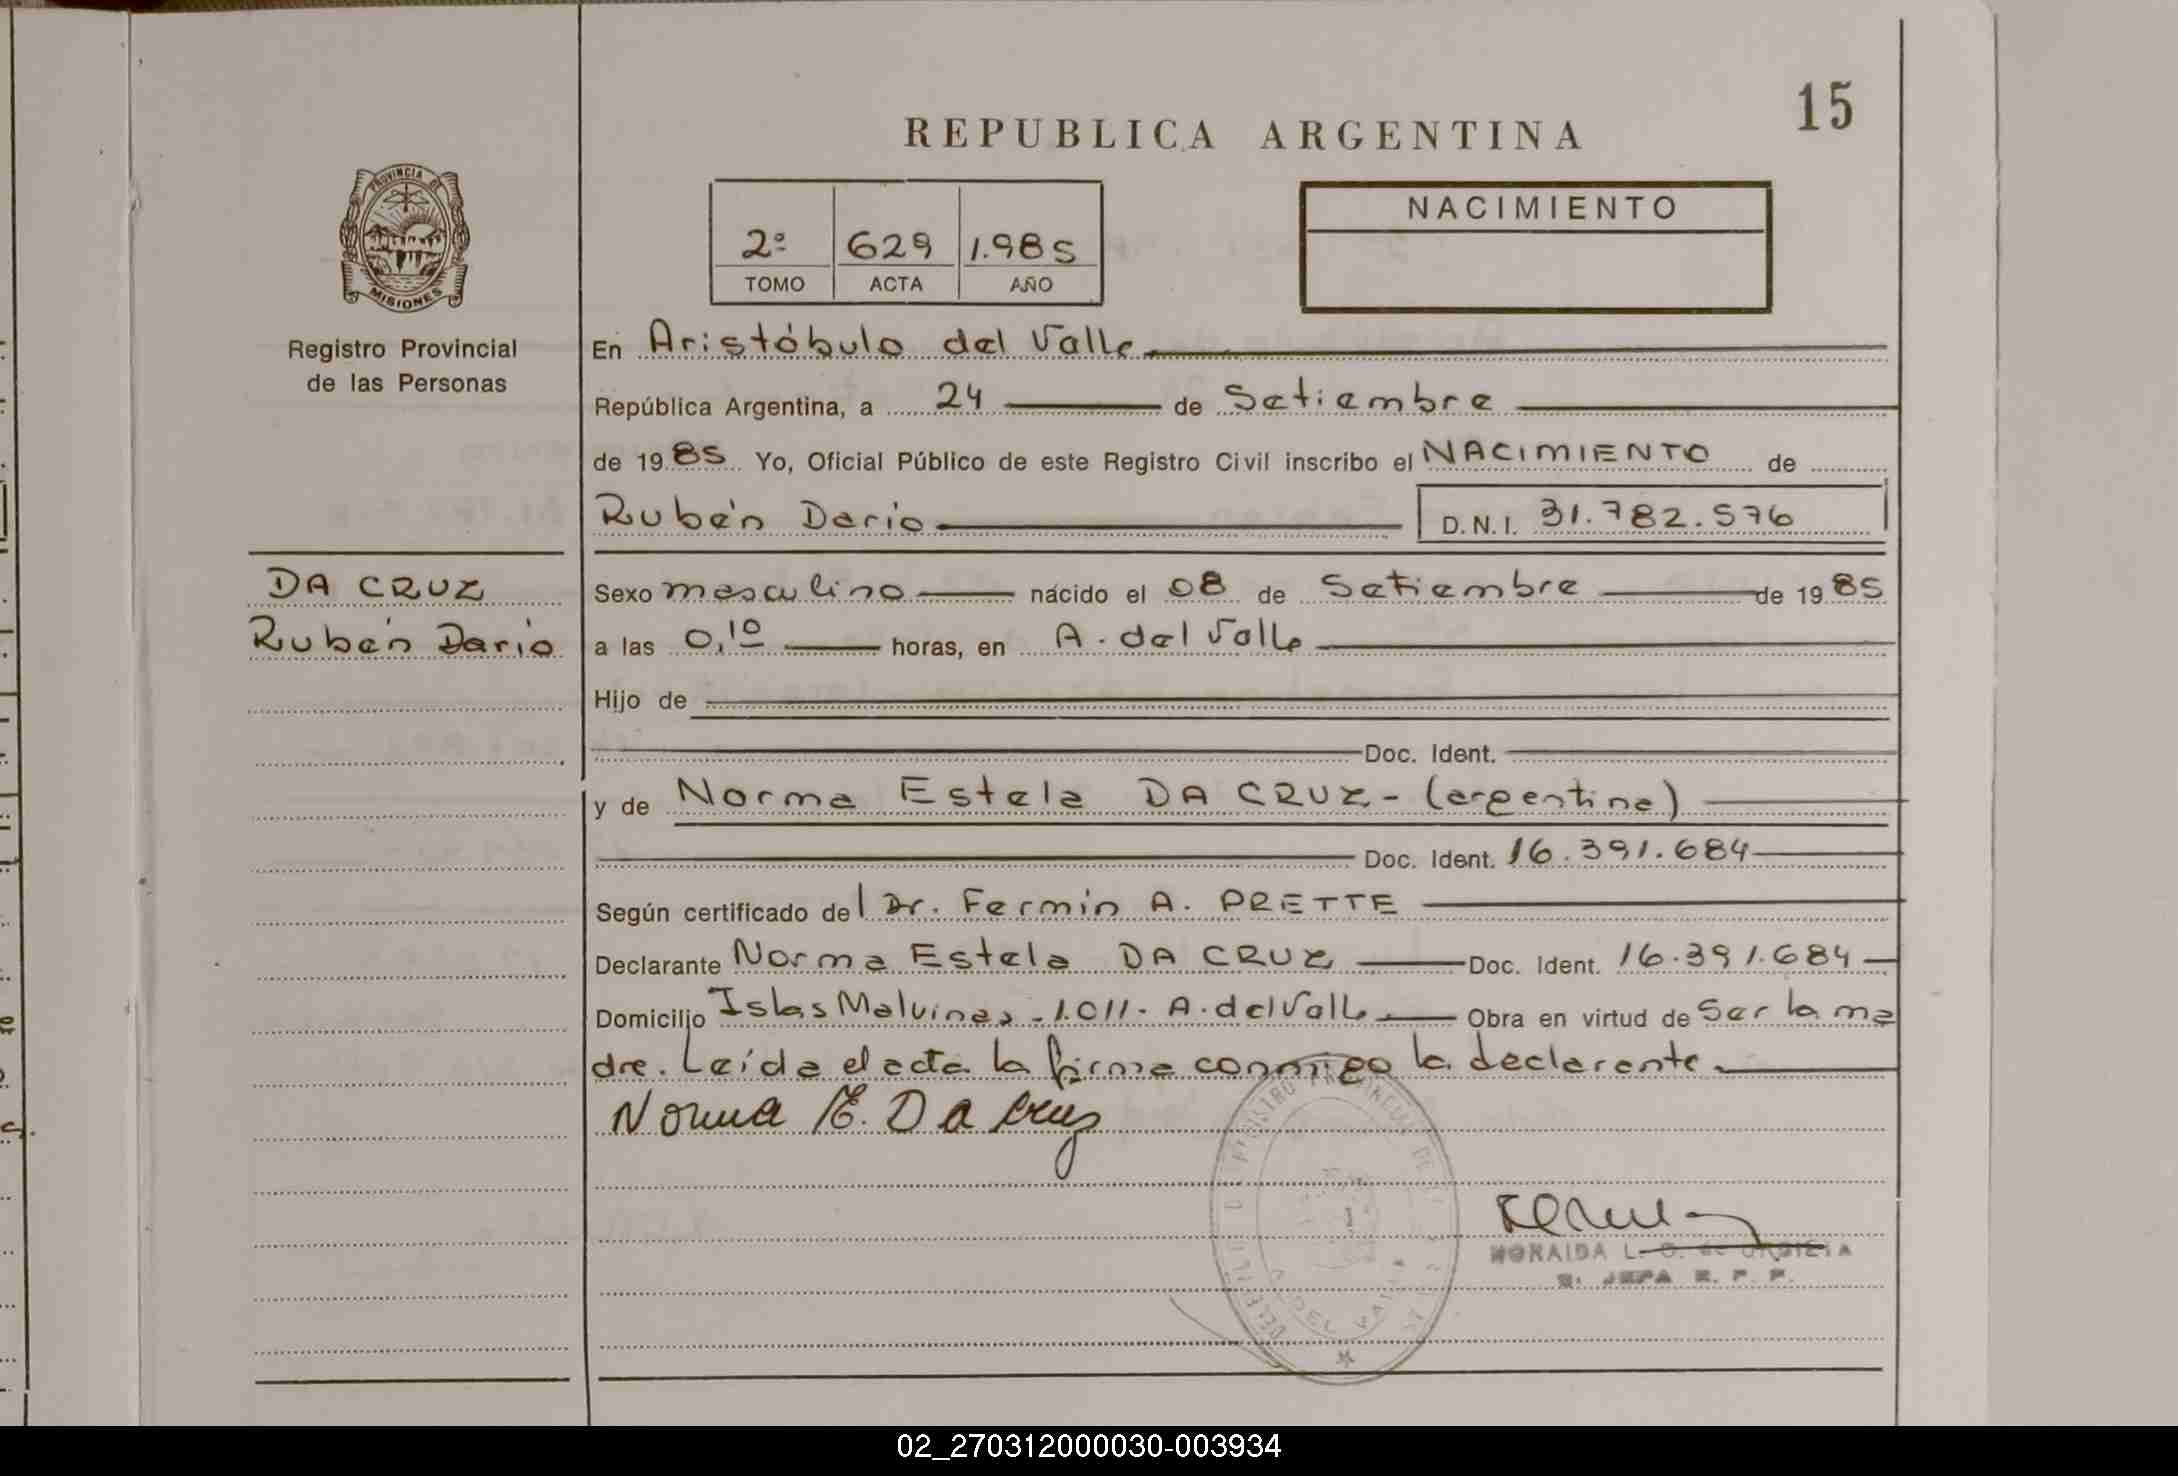 15
REPUBLICA ARGENTINA
PROVINCIA DE
MISIONES
Registro Provincial
de las Personas
2º 629 1.985
TOMO ACTA AÑO
NACIMIENTO
En Aristóbulo del Valle
República Argentina, a 24 de Setiembre
de 1985 Yo, Oficial Público de este Registro Civil inscribo el NACIMIENTO de
Rubén Darío D.N.I. 31.782.576
DA CRUZ
Rubén Darío
Sexo masculino nacido el 08 de Setiembre de 1985
a las 0,10 horas, en A. del Valle
Hijo de
Doc. Ident.
y de Norma Estela DA CRUZ - (argentina)
Doc. Ident. 16.391.684
Según certificado del Dr. Fermín A. PRETTE
Declarante Norma Estela DA CRUZ Doc. Ident. 16.391.684
Domicilio Islas Malvinas - 1.011 - A. del Valle Obra en virtud de Ser la ma
dre. Leída el acta la firma conmigo la declarante
Norma E. Da Cruz
DEL VALLE
02_270312000030-003934